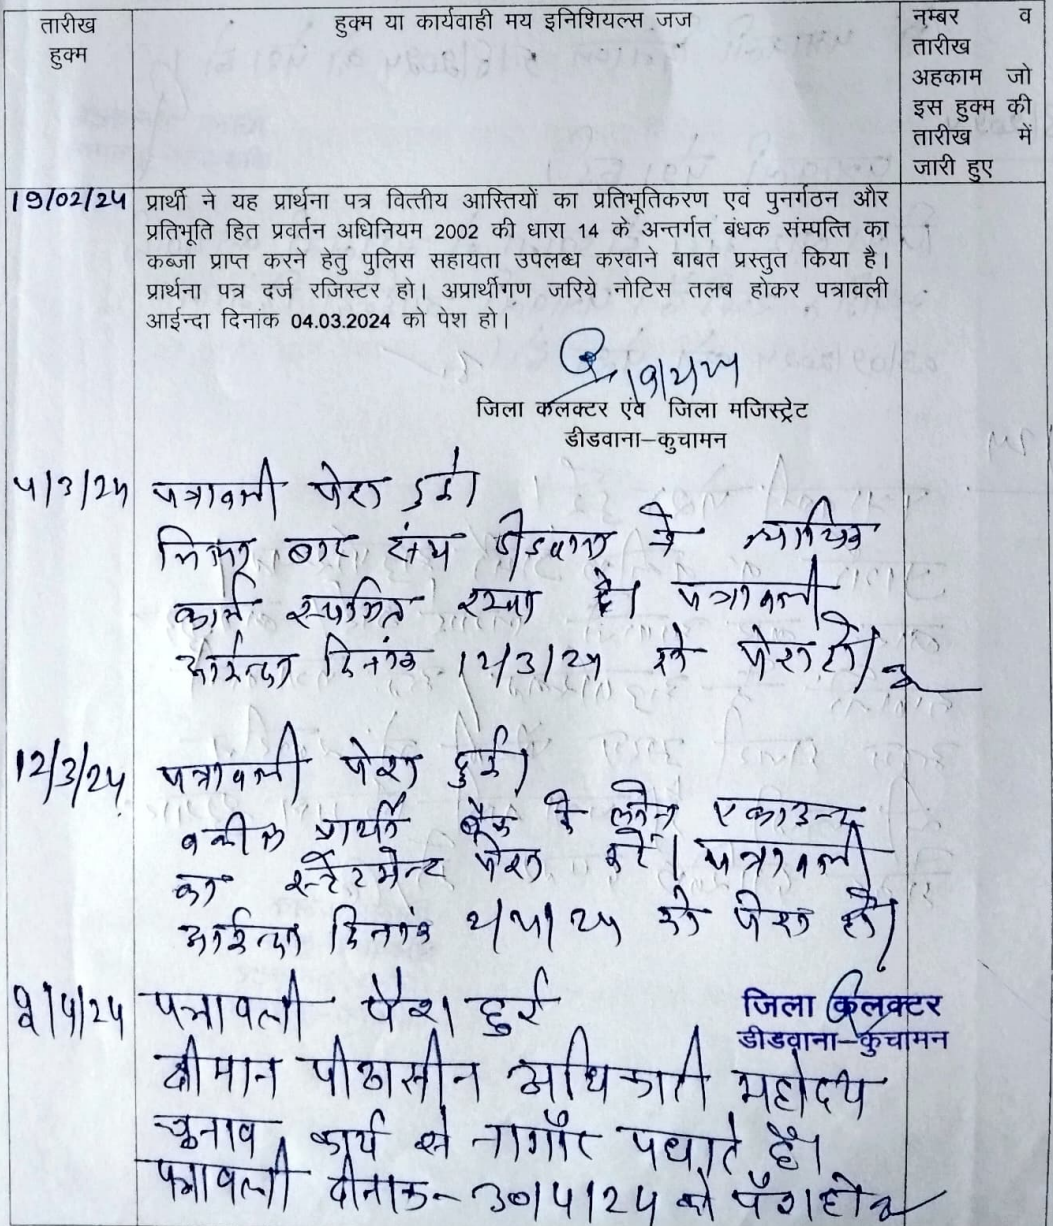 तारीख
हुक्म
हुक्म या कार्यवाही मय इनिशियल्स जज
नम्बर व
तारीख
अहकाम जो
इस हुक्म की
तारीख में
जारी हुए
19/02/24
प्रार्थी ने यह प्रार्थना पत्र वित्तीय आस्तियों का प्रतिभूतिकरण एवं पुनर्गठन और
प्रतिभूति हित प्रवर्तन अधिनियम 2002 की धारा 14 के अन्तर्गत बंधक संम्पत्ति का
कब्जा प्राप्त करने हेतु पुलिस सहायता उपलब्ध करवाने बाबत प्रस्तुत किया है।
प्रार्थना पत्र दर्ज रजिस्टर हो। अप्रार्थीगण जरिये नोटिस तलब होकर पत्रावली
आईन्दा दिनांक 04.03.2024 को पेश हो।
जिला कलक्टर एंव जिला मजिस्ट्रेट
डीडवाना–कुचामन
4/3/24 पत्रावली पेश हुई।
बार संघ डीडवाना ने न्यायिक
कार्य स्थगित रखा है। पत्रावली
आईन्दा दिनांक 12/3/24 को पेश हो।
12/3/24 पत्रावली पेश हुई।
वकील प्रार्थी बैंक के लोन एकाउन्ट
का स्टेटमेन्ट पेश करें। पत्रावली
आईन्दा दिनांक 2/4/24 को पेश हो।
जिला कलक्टर
डीडवाना–कुचामन
2/4/24 पत्रावली पेश हुई
श्रीमान पीठासीन अधिकारी महोदय
चुनाव कार्य से नागौर पधारे है।
पत्रावली दीनाक- 30/4/24 को पेश हो